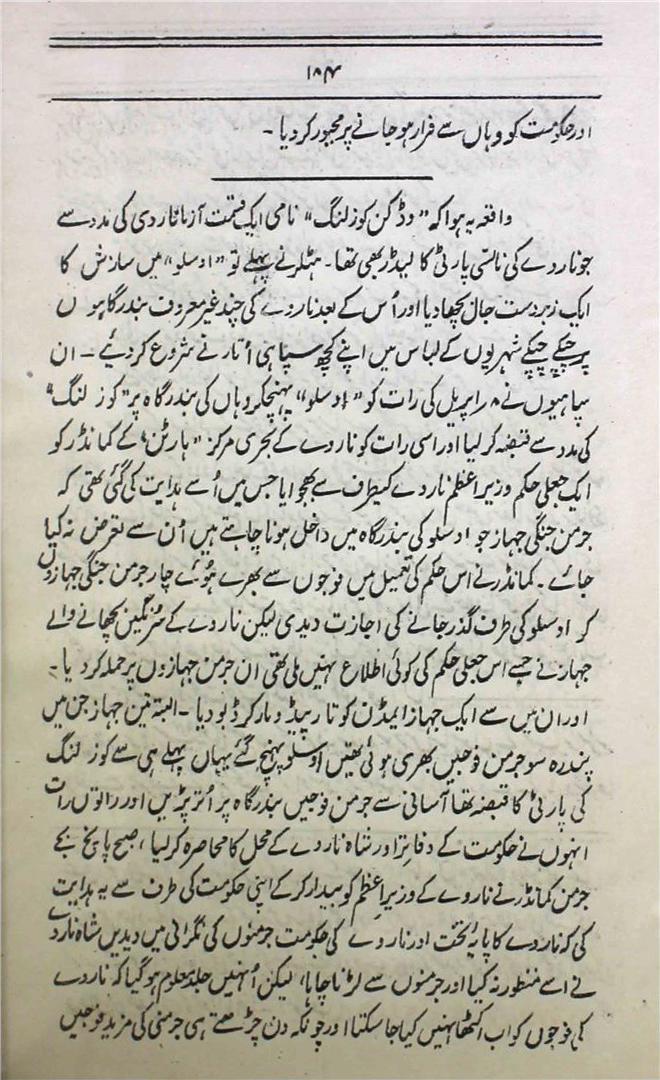 ۱۸۴
اور حکومت کو وہاں سے فرار ہو جانے پر مجبور کر دیا ۔
واقعہ یہ ہوا کہ "وڈکن کوزلنگ" نامی ایک قسمت آزما نارو ی کی مدد سے
جو ناروے کی ناتسی پارٹی کا لیڈر بھی تھا۔ ہٹلر نے پہلے تو "اوسلو" میں سازش کا
ایک زبردست جال بچھا دیا اور اُس کے بعد ناروے کی چند غیر معروف بندرگاہوں
پر چپکے چپکے شہریوں کے لباس میں اپنے کچھ سپاہی اُتارنے شروع کر دئیے ۔ ان
سپاہیوں نے ۸ اپریل کی رات کو "اوسلو" پہنچکر وہاں کی بندرگاہ پر "کوزلنگ"
کی مدد سے قبضہ کر لیا اور اسی رات کو ناروے کے بحری مرکز "ہارٹن" کے کمانڈر کو
ایک جعلی حکم وزیر اعظم ناروے کیطرف سے بھجوایا جس میں اُسے ہدایت کی گئی تھی کہ
جرمن جنگی جہاز جو اوسلو کی بندرگاہ میں داخل ہونا چاہتے ہیں اُن سے تعرض نہ کیا
جائے ۔ کمانڈر نے اس حکم کی تعمیل میں فوجوں سے بھرے ہوئے چار جرمن جنگی جہازوں
کو اوسلو کی طرف گذر جانے کی اجازت دیدی لیکن ناروے کے سُرنگیں بچھانے والے
جہاز نے جسے اس جعلی حکم کی کوئی اطلاع نہیں ملی تھی ان جرمن جہازوں پر حملہ کر دیا ۔
اور ان میں سے ایک جہاز ایمڈن کو تارپیڈو مار کر ڈبو دیا ۔ البتہ تین جہاز جن میں
پندرہ سو جرمن فوجیں بھری ہوئی تھیں اوسلو پہنچ گئے یہاں پہلے ہی سے کوزلنگ
کی پارٹی کا قبضہ تھا آسانی سے جرمن فوجیں بندرگاہ پر اُتر پڑیں اور راتوں رات
انہوں نے حکومت کے دفاتر اور شاہ ناروے کے محل کا محاصرہ کر لیا ، صبح پانچ بجے
جرمن کمانڈر نے ناروے کے وزیر اعظم کو بیدار کر کے اپنی حکومت کی طرف سے یہ ہدایت
کی کہ ناروے کا پایۂ تخت اور ناروے کی حکومت جرمنوں کی نگرانی میں دیدیں شاہ ناروے
نے اسے منظور نہ کیا اور جرمنوں سے لڑنا چاہا، لیکن اُنہیں جلد معلوم ہو گیا کہ ناروے
کی فوجوں کو اب اکٹھا نہیں کیا جا سکتا اور چونکہ دن چڑھتے ہی جرمنی کی مزید فوجیں